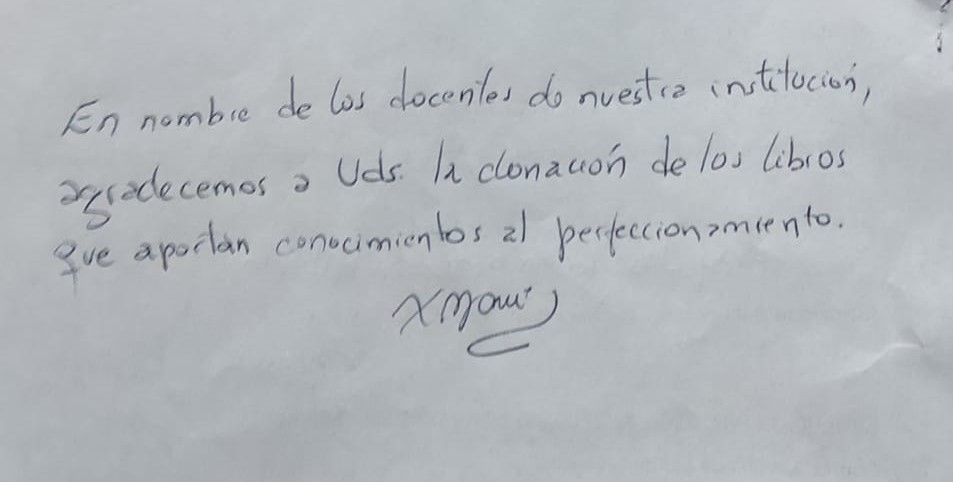 En nombre de los docentes de nuestra institución,
agradecemos a Uds. la donación de los libros
que aportan conocimientos al perfeccionamiento.